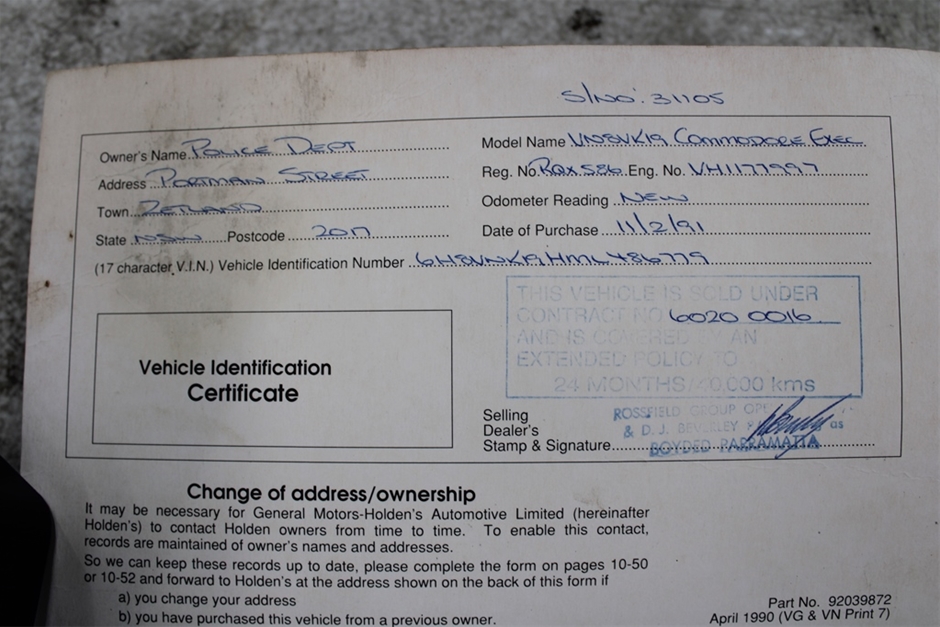 S/NO: 31105
Owner's Name POLICE DEPT
Address PORTMAN STREET
Town ZETLAND
State NSW Postcode 2017
Model Name VN8VK19 COMMODORE EXEC
Reg. No. RQX586 Eng. No. VH1177997
Odometer Reading NEW
Date of Purchase 11/2/91
(17 character V.I.N.) Vehicle Identification Number 6H8VNK19HML486779
THIS VEHICLE IS SOLD UNDER
CONTRACT NO 6020 0016
AND IS COVERED BY AN
EXTENDED POLICY TO
24 MONTHS/40,000 kms
Vehicle Identification
Certificate
Selling
Dealer's
Stamp & Signature
ROSSFIELD GROUP
& D. J. BEVERLEY as
BOYDED PARRAMATTA
Change of address/ownership
It may be necessary for General Motors-Holden's Automotive Limited (hereinafter
Holden's) to contact Holden owners from time to time. To enable this contact,
records are maintained of owner's names and addresses.
So we can keep these records up to date, please complete the form on pages 10-50
or 10-52 and forward to Holden's at the address shown on the back of this form if
a) you change your address
b) you have purchased this vehicle from a previous owner.
Part No. 92039872
April 1990 (VG & VN Print 7)